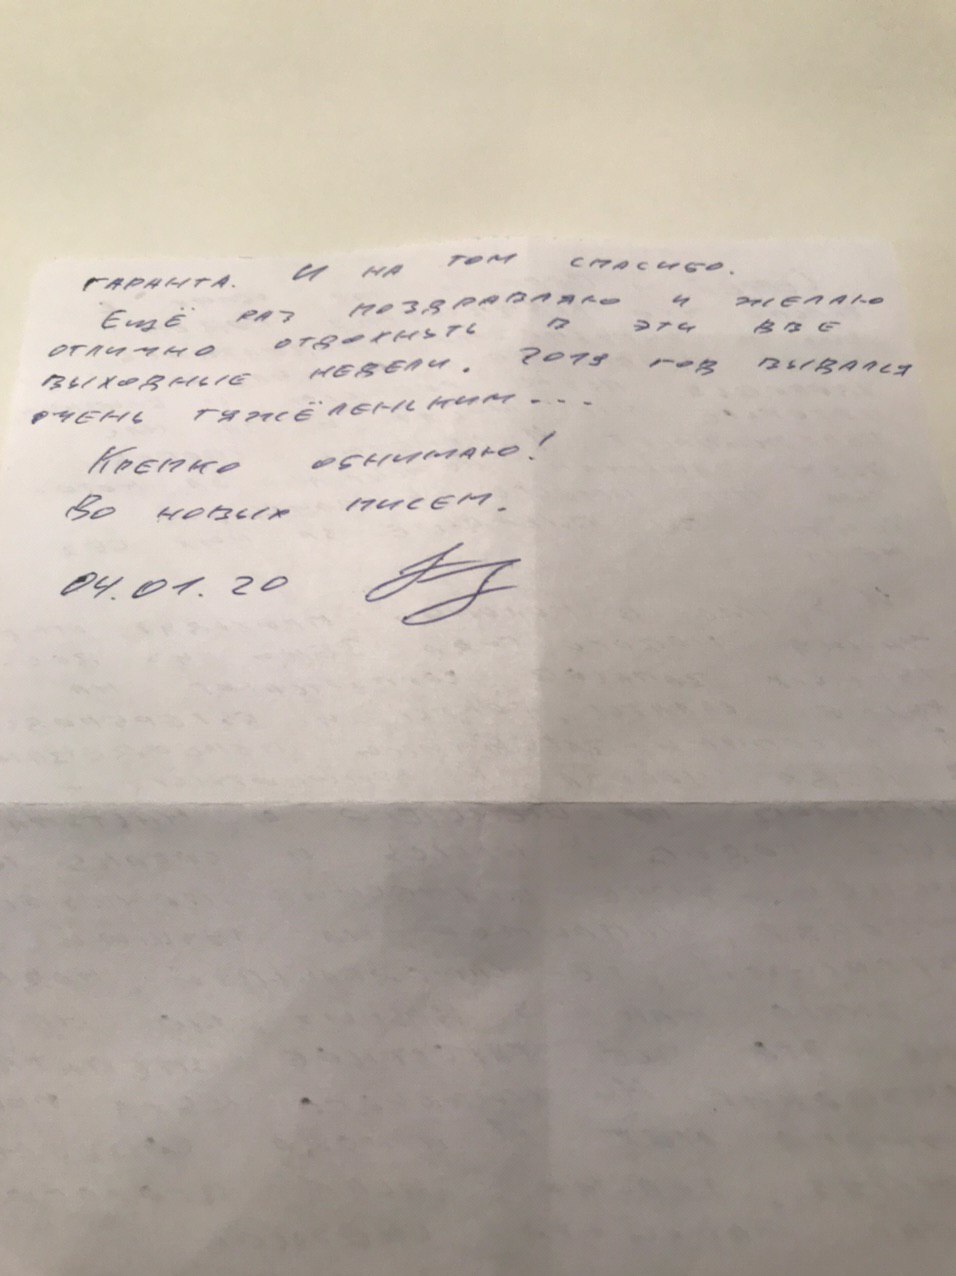 гаранта. И на том спасибо.
Ещё раз поздравляю и желаю
отлично отдохнуть в эти две
выходные недели. 2019 год выдался
очень тяжёленьким...
Крепко обнимаю!
До новых писем.
04.01.20